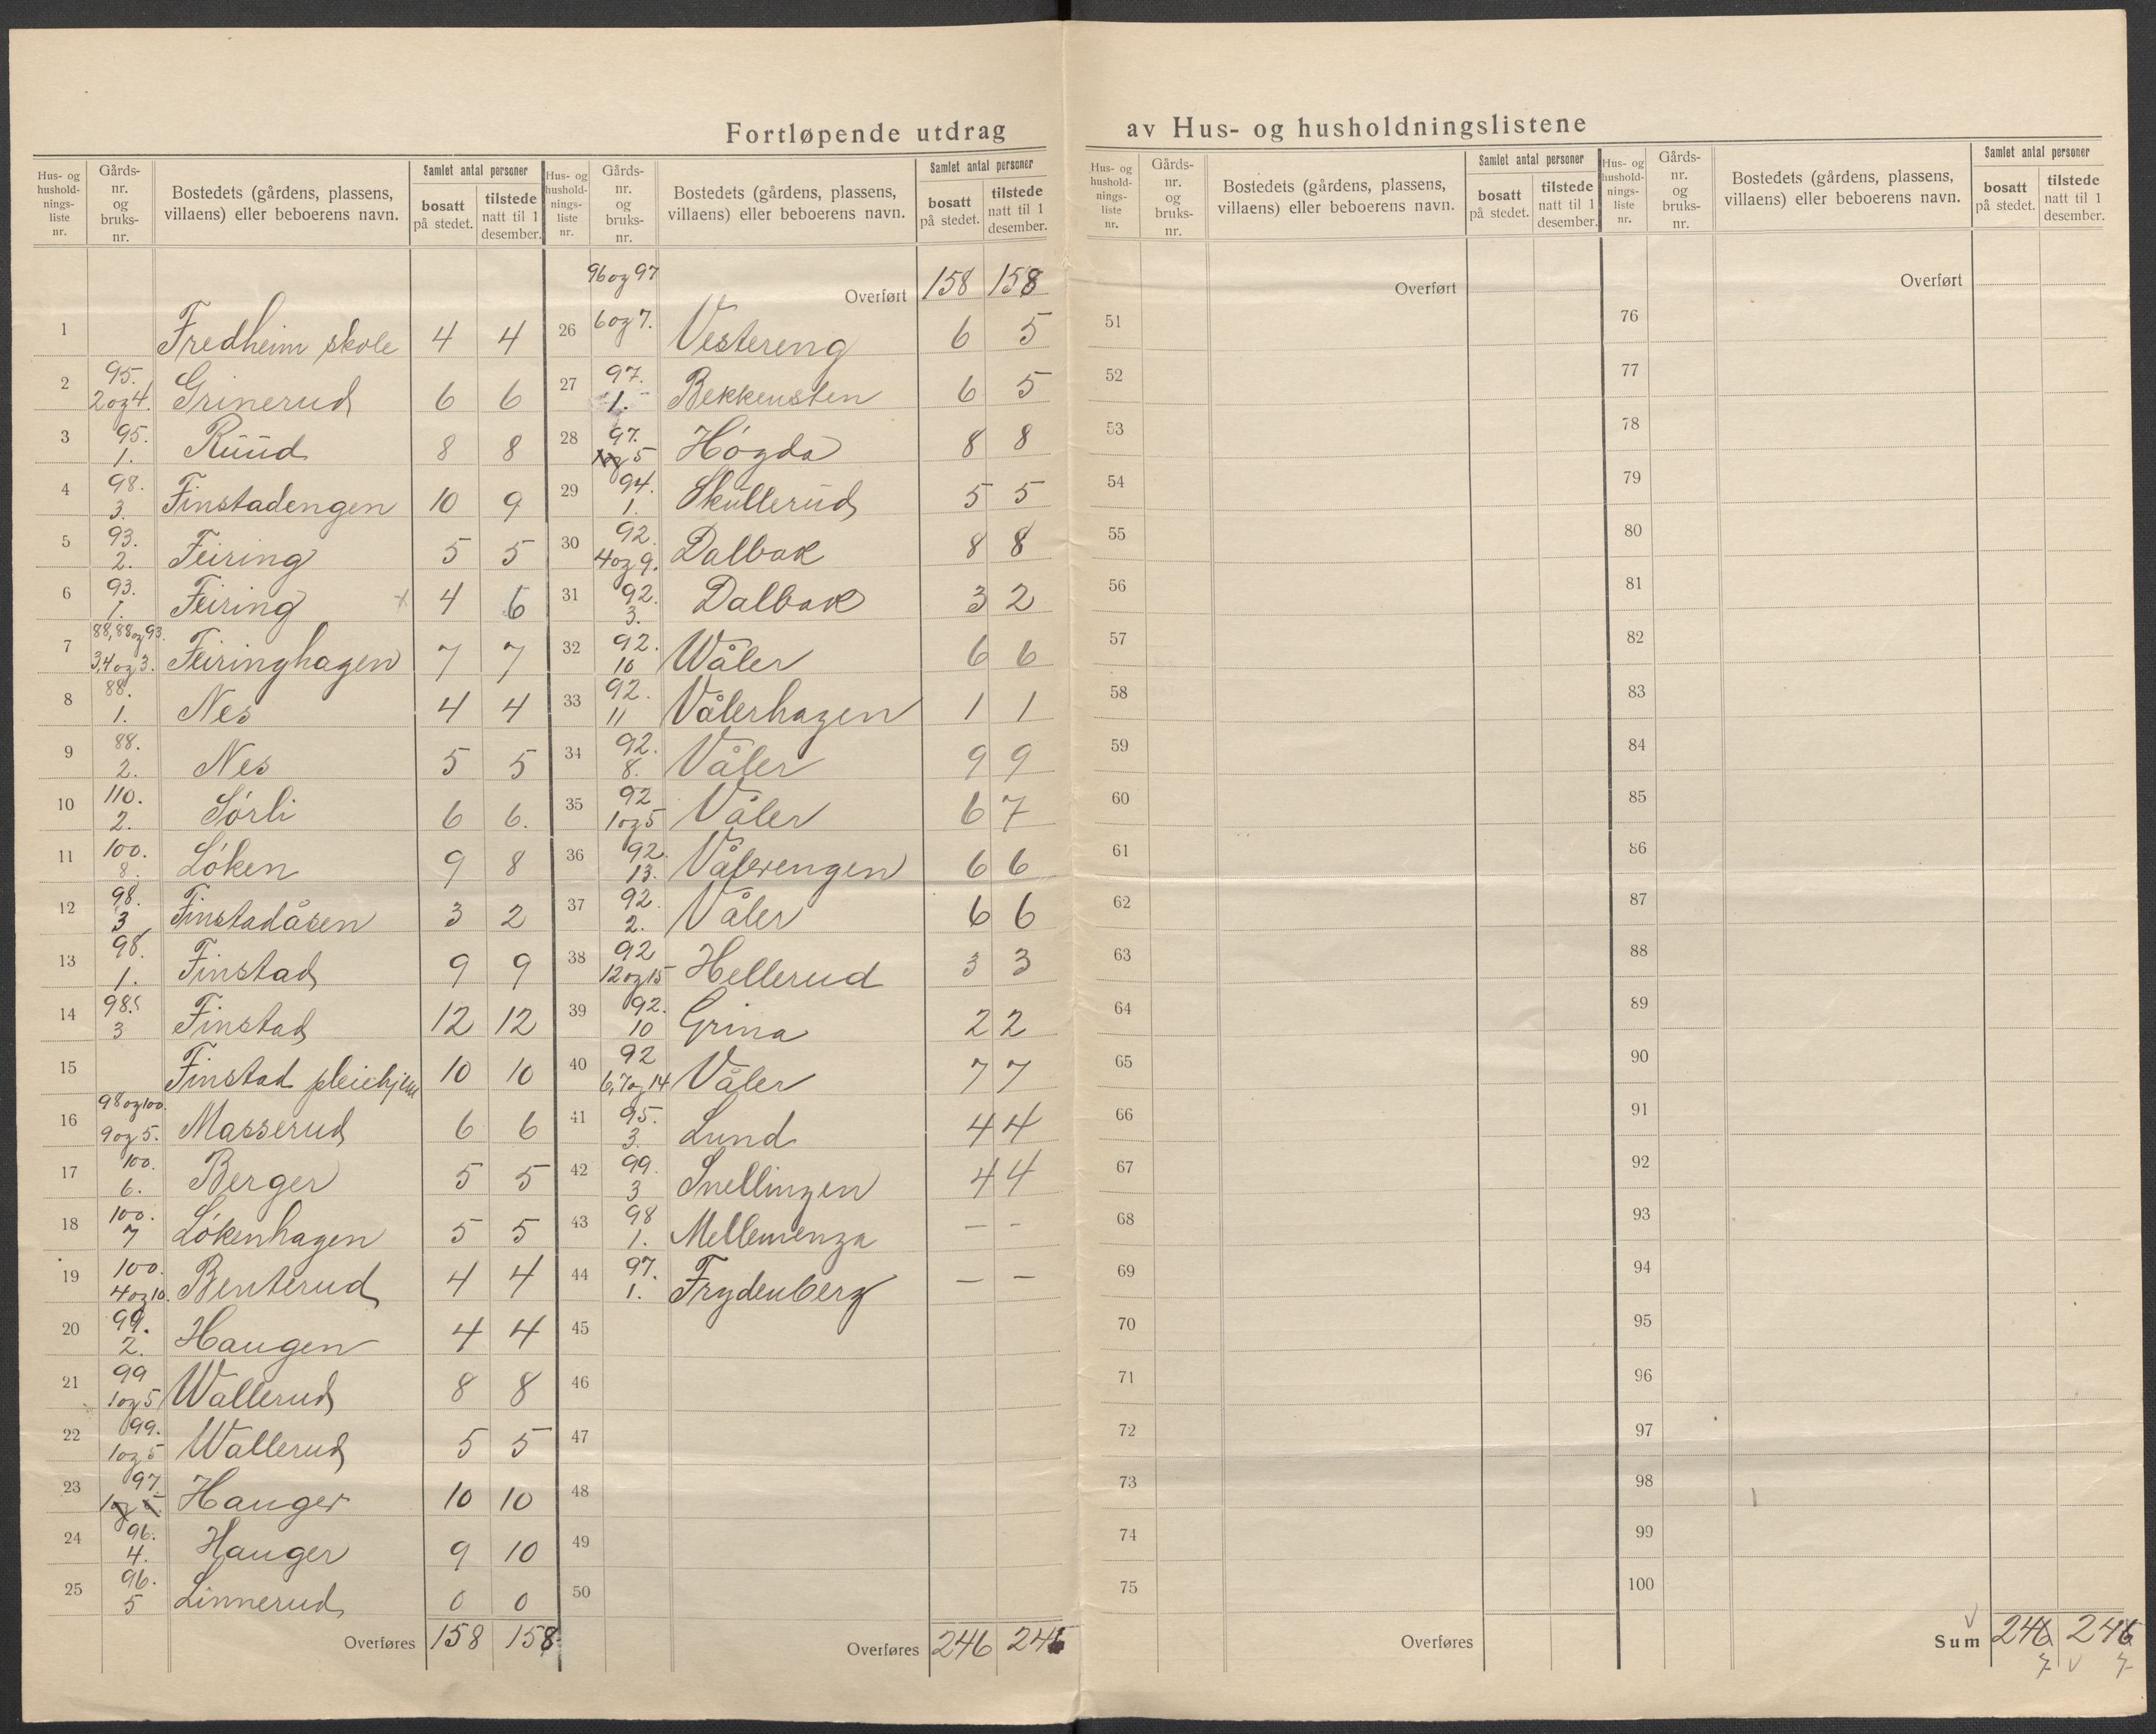 Fortløpende utdrag av Hus- og husholdningslistene
Hus- og hushold-nings-liste nr. | Gårds-nr. og bruks-nr. | Bostedets (gårdens, plassens, villaens) eller beboerens navn. | Samlet antal personer bosatt på stedet. | tilstede natt til 1 desember.
1 Fredheim skole 4 4
2 95. 2 og 4. Grinerud 6 6
3 95. 1. Ruud 8 8
4 98. 3. Finstadengen 10 9
5 93. 2. Feiring 5 5
6 93. 1. Feiring x 4 6
7 88, 88 og 93. 3,4 og 3. Feiringhagen 7 7
8 88. 1. Nes 4 4
9 88. 2. Nes 5 5
10 110. 2. Sørli 6 6.
11 100. 8. Løken 9 8
12 98. 3 Finstadåsen 3 2
13 98. 1. Finstad 9 9
14 98. 3 Finstad 12 12
15 Finstad pleiehjem 10 10
16 98 og 100. 9 og 5. Masserud 6 6
17 100. 6. Berger 5 5
18 100. 7 Løkenhagen 5 5
19 100. 4 og 10. Benterud 4 4
20 99. 2. Haugen 4 4
21 99 1 og 5 Wallerud 8 8
22 99. 1 og 5 Wallerud 5 5
23 97. 1 Hauger 10 10
24 96. 4. Hauger 9 10
25 96. 5 Linnerud 0 0
Overføres 158 158
Hus- og hushold-nings-liste nr. | Gårds-nr. og bruks-nr. | Bostedets (gårdens, plassens, villaens) eller beboerens navn. | Samlet antal personer bosatt på stedet. | tilstede natt til 1 desember.
Overført 158 158
26 96 og 97 6 og 7. Vestereng 6 5
27 97. 1. Bekkensten 6 5
28 97. 5 Høgda 8 8
29 94. 1. Skullerud 5 5
30 92. 4 og 9. Dalbak 8 8
31 92. 3. Dalbak 3 2
32 92. 16 Wåler 6 6
33 92. 11 Vålerhagen 1 1
34 92. 8. Våler 9 9
35 92 1 og 5 Våler 6 7
36 92. 13. Vålerengen 6 6
37 92. 2. Våler 6 6
38 92 12 og 15 Hellerud 3 3
39 92. 10 Grina 2 2
40 92 6, 7 og 14 Våler 7 7
41 95. 3. Lund 4 4
42 99. 3 Snellingen 4 4
43 98 1. Mellemenga — -
44 97. 1. Frydenberg — —
45
46
47
48
49
50
Overføres 246 246
Hus- og hushold-nings-liste nr. | Gårds-nr. og bruks-nr. | Bostedets (gårdens, plassens, villaens) eller beboerens navn. | Samlet antal personer bosatt på stedet. | tilstede natt til 1 desember.
Overført
51
52
53
54
55
56
57
58
59
60
61
62
63
64
65
66
67
68
69
70
71
72
73
74
75
Overføres
Hus- og hushold-nings-liste nr. | Gårds-nr. og bruks-nr. | Bostedets (gårdens, plassens, villaens) eller beboerens navn. | Samlet antal personer bosatt på stedet. | tilstede natt til 1 desember.
Overført
76
77
78
79
80
81
82
83
84
85
86
87
88
89
90
91
92
93
94
95
96
97
98
99
100
Sum 246 246
7 7